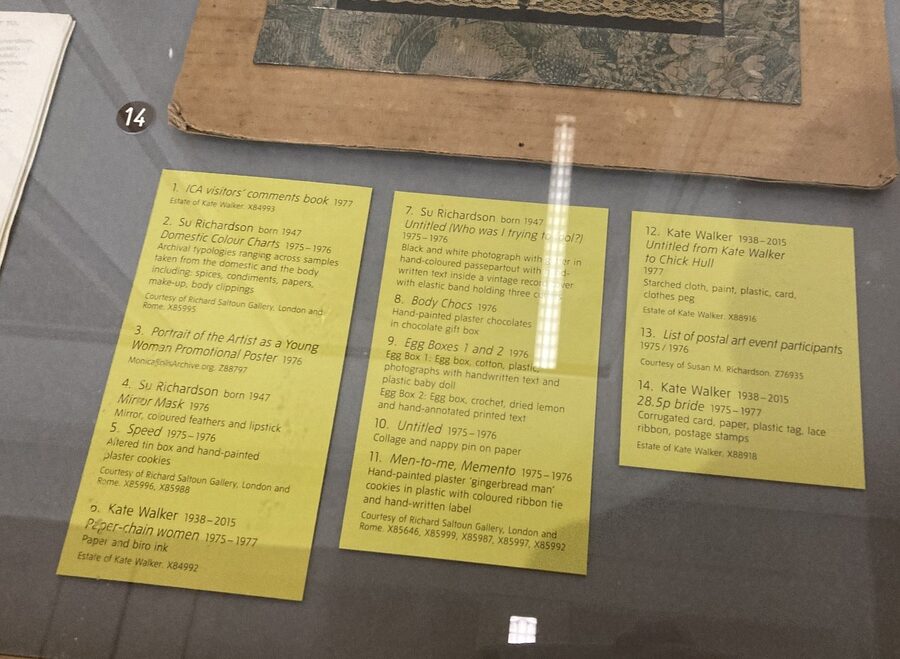 14
1. ICA visitors' comments book 1977
Estate of Kate Walker. X84993
2. Su Richardson born 1947
Domestic Colour Charts 1975–1976
Archival typologies ranging across samples
taken from the domestic and the body
including: spices, condiments, papers,
make-up, body clippings
Courtesy of Richard Saltoun Gallery, London and
Rome. X85995
3. Portrait of the Artist as a Young
Woman Promotional Poster 1976
Archive.org. Z88797
4. Su Richardson born 1947
Mirror Mask 1976
Mirror, coloured feathers and lipstick
5. Speed 1975–1976
Altered tin box and hand-painted
plaster cookies
Courtesy of Richard Saltoun Gallery, London and
Rome. X85996, X85988
6. Kate Walker 1938–2015
Paper-chain women 1975–1977
Paper and biro ink
Estate of Kate Walker. X84992
7. Su Richardson born 1947
Untitled (Who was I trying to)
1975–1976
Black and white photograph with in
hand-coloured passepartout with
written text inside a vintage record cover
with elastic band holding three
8. Body Chocs 1976
Hand-painted plaster chocolates
in chocolate gift box
9. Egg Boxes 1 and 2 1976
Egg Box 1: Egg box, cotton, plastic,
photographs with handwritten text and
plastic baby doll
Egg Box 2: Egg box, crochet, dried lemon
and hand-annotated printed text
10. Untitled 1975–1976
Collage and nappy pin on paper
11. Men-to-me, Memento 1975–1976
Hand-painted plaster 'gingerbread man'
cookies in plastic with coloured ribbon tie
and hand-written label
Courtesy of Richard Saltoun Gallery, London and
Rome. X85646, X85999, X85987, X85997, X85992
12. Kate Walker 1938–2015
Untitled from Kate Walker
to Chick Hull
1977
Starched cloth, paint, plastic, card,
clothes peg
Estate of Kate Walker. X88916
13. List of postal art event participants
1975 / 1976
Courtesy of Susan M. Richardson. Z76935
14. Kate Walker 1938–2015
28.5p bride 1975–1977
Corrugated card, paper, plastic tag, lace
ribbon, postage stamps
Estate of Kate Walker. X88918